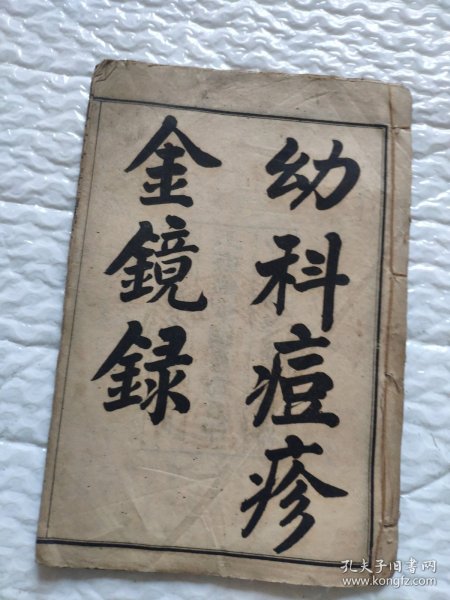 幼科痘疹
金鏡録
孔夫子旧书网
www.kongfz.com